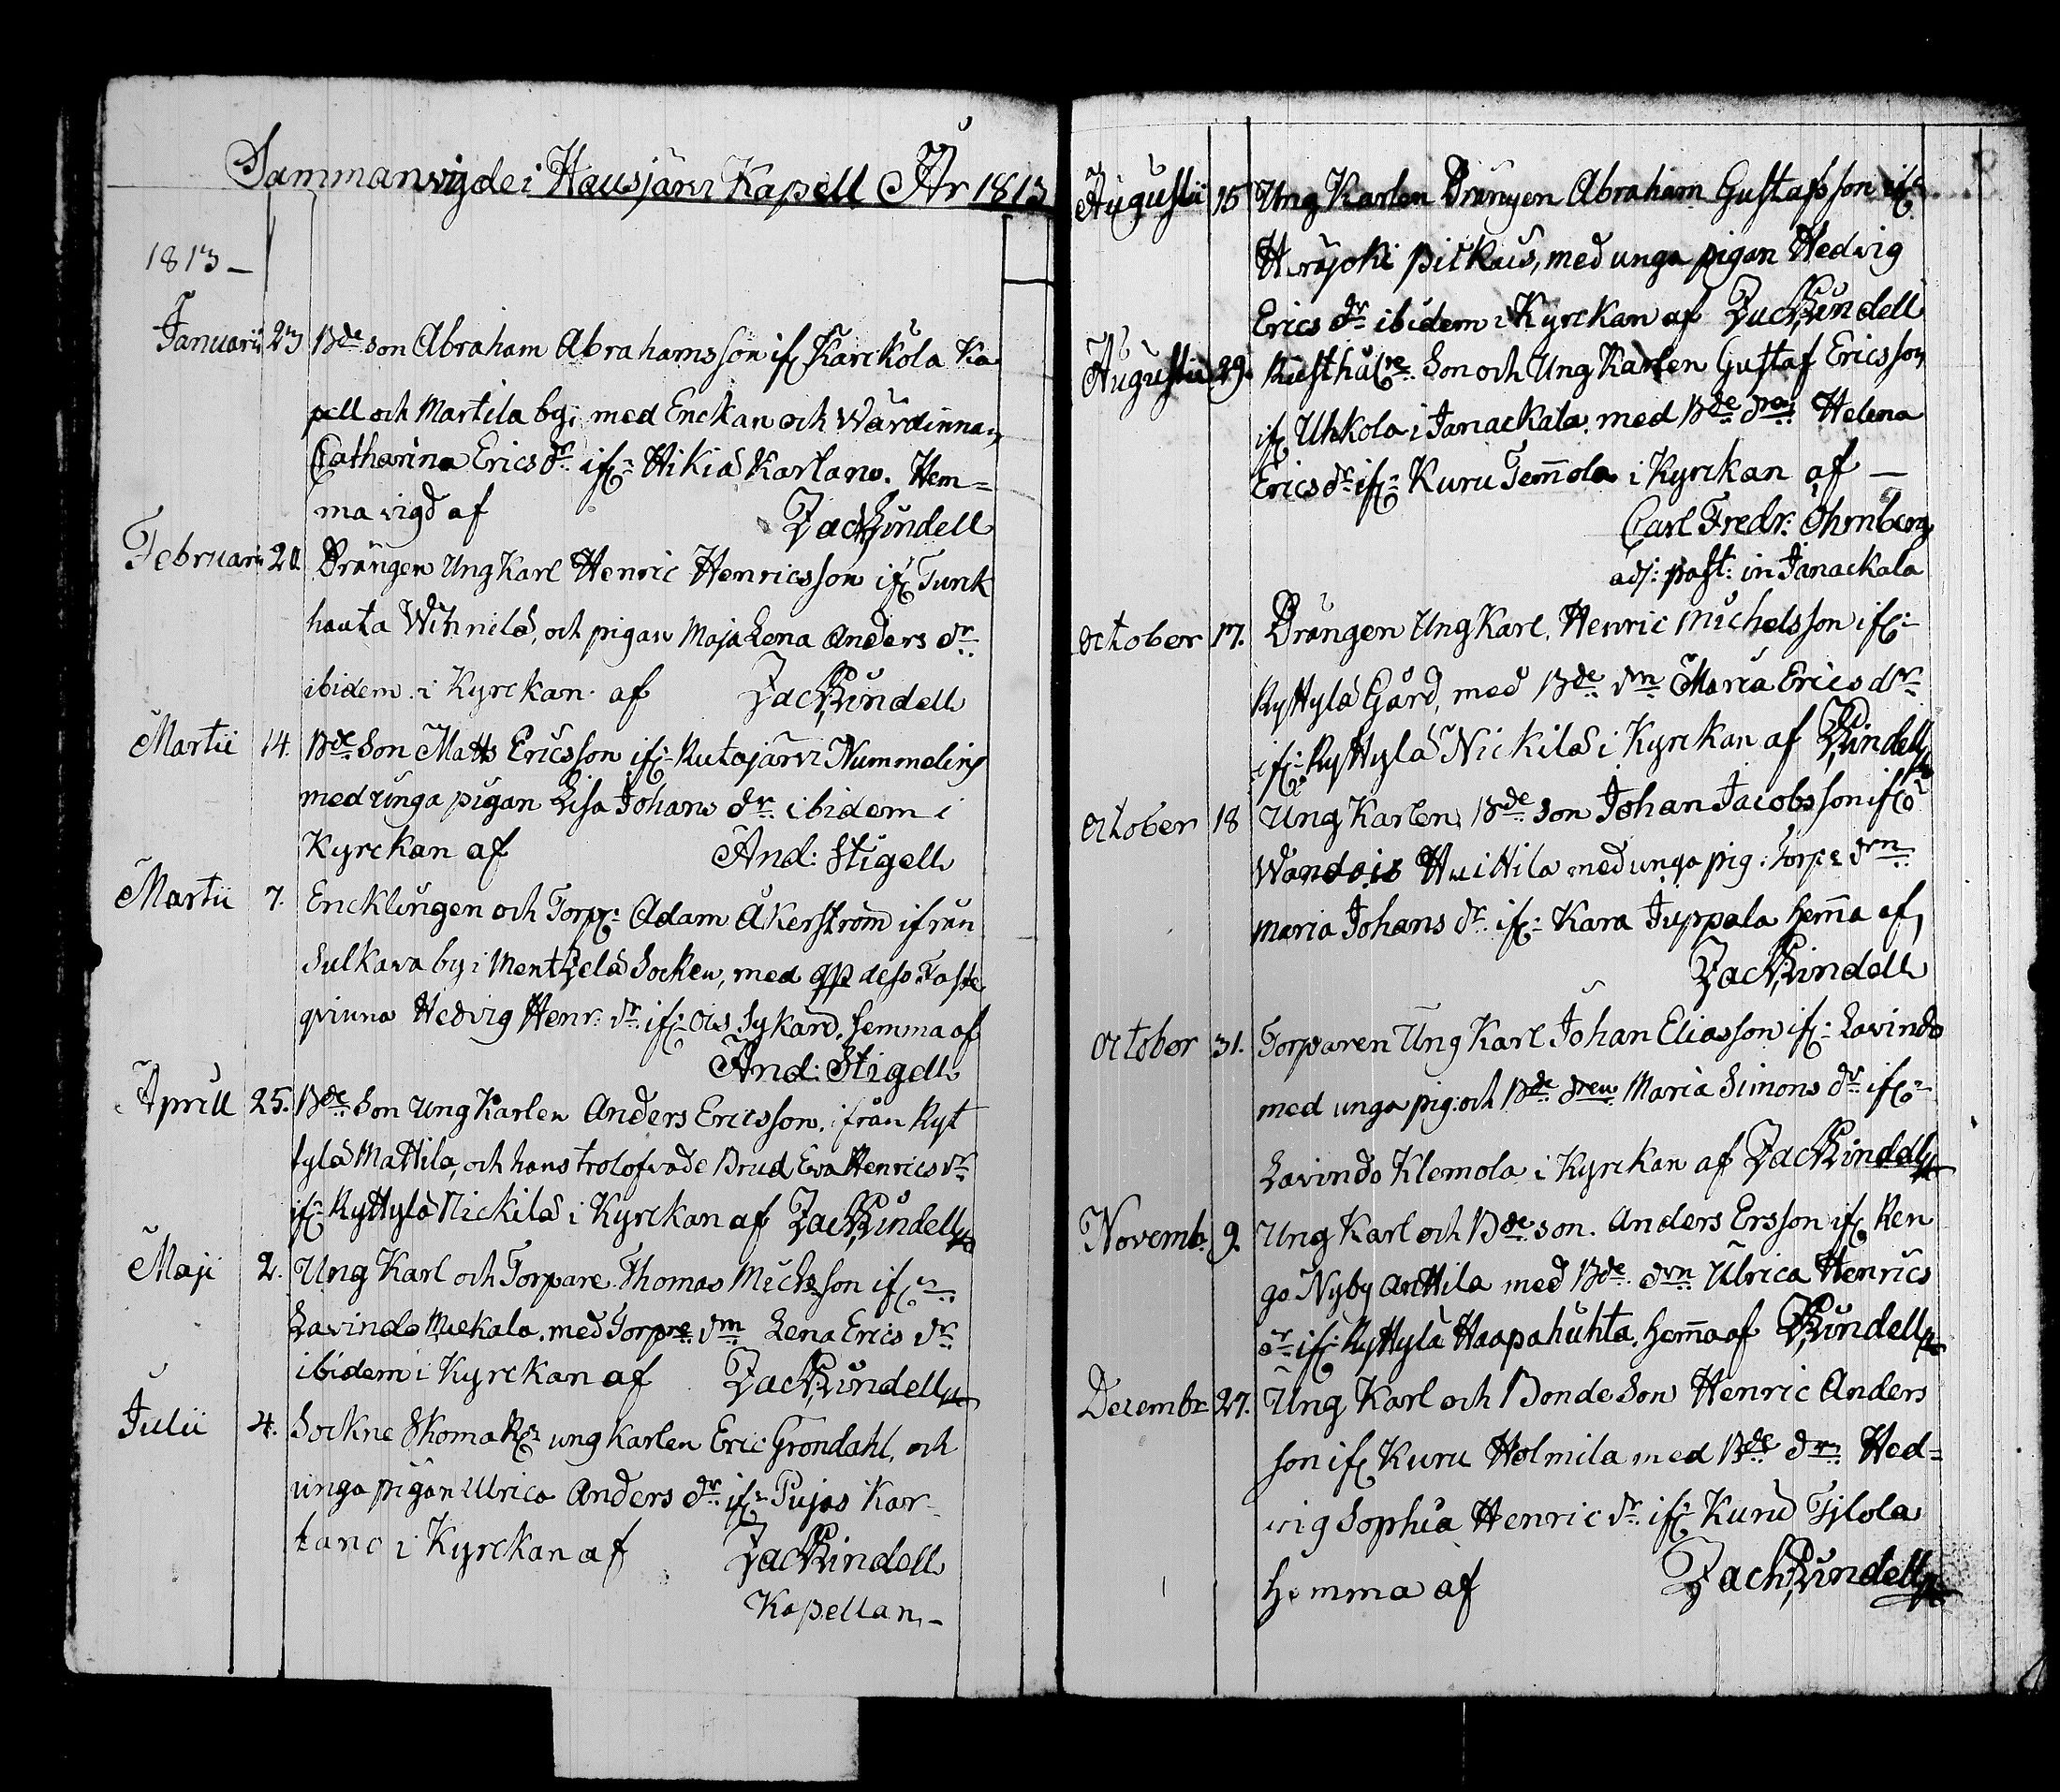 Sammanvigde i Hausjärvi Kapell År 1813
1813 –
Januarii 23 Bde son Abraham Abrahamsson if: Kärckölä Ka
pell och Martila by, med Enckan och Wärdinnan
Catharina Ericsdr if: Hikiä Kartano. Hem=
ma vigd af Zach Lundell
Februarii 20 Drängen Ung Karl Henric Henricsson if: Turk
hauta , och pigan Maja Lena Anders dr
ibidem i Kyrckan af Zach Lundell
Martii 14. Bde Son Matts Ericsson if: Rutajärvi Nummelin
med unga pigan Lisa Johans dr ibidem i
Kyrckan af And: Stigell
Martii 7. Encklingen och Torpr: Adam Åkerström ifrån
Sulkava by i Mentzelä Socken, med dess Fäste
qvinna Hedvig Henr: dr if: Ois , hemma af
And: Stigell
Aprill 25. Bde Son Ung Karlen Anders Ericsson, ifrån Ryt
tylä Mattila, och hans trolofvade Brud Eva Henrics dr
if: Ryttylä Nickilä i Kyrckan af Zach Lundell
Maji 2. Ung Karl och Torpare Thomas Michsson if:
Lavindo Miekala, med Torpre drn Lena Erics dr
ibidem i Kyrckan af Zach Lundell
Julii 4. Sockne Skomakr ung karlen Eric Gröndahl, och
unga pigan Ulrica Anders dr if: Pujas Kar-
tano i Kyrckan af Zach Lundell
Kapellan –
Augustii 15 Ung Karlen Drängen Abraham Gustafsson if:
Herajoki Pitkäis, med unga pigan Hedvig
Erics dr ibidem i Kyrckan af Zach Lundell
Augustii 29. Rusthålre Son och Ung Karlen Gustaf Ericsson
if: Uhkola i Janackala, med Bde drn Helena
Erics dr if: Kuru Tem̄ola i Kyrckan af –
Carl Fredr: Öhrnberg
adj: past: in Janackala
October 17. Drängen Ung Karl, Henric Michelsson if:
Ryttylä Gård, med Bde drn Maria Erics dr
if: Ryttylä Nickilä i Kyrckan af Zach Lundell
October 18 Ung Karlen, Bde Son Johan Jacobsson if:
Wandais Huittila med unga pig: Torpe drn
Maria Johans dr if: Kara Juppala hem̄a af,
Zach Lundell
October 31. Torparen Ung Karl Johan Eliasson if: Lavindo
med unga pig: och Bde dren Maria Simons dr if:
Lavindo Klemola i Kyrckan af Zach Lundell
Novemb: 9. Ung Karl och Bde son Anders Ersson if: Ren
go Nyby Anttila med Bde drn Ulrica Henrics
dr if: Ryttylä Haapahuhta, hem̄a af Z Lundell
Decembr 27. Ung Karl och Bonde Son Henric Anders
son if: Kuru Holmila med Bde drn Hed=
vig Sophia Henric dr if: Kuru Tjlola
hemma af Zach Lundell